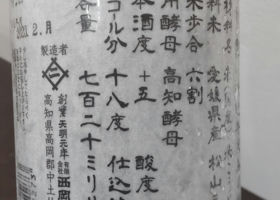 料米 愛媛県産 松山三
米歩合 六割
用酵母 高知酵母
本酒度 +五 酸度
コール分 十八度 仕込
容量 七百二十ミリリ
製造者
創業天明元年 有限 西岡
高知県高岡郡中土
2021. 2.月